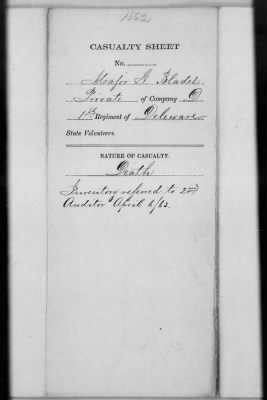 1862
CASUALTY SHEET
No.
Major G. Blades.
Private of Company D
1st Regiment of Delaware
State Volunteers.
NATURE OF CASUALTY.
Death
Inventory referred to 2nd
Auditor April 6/63.